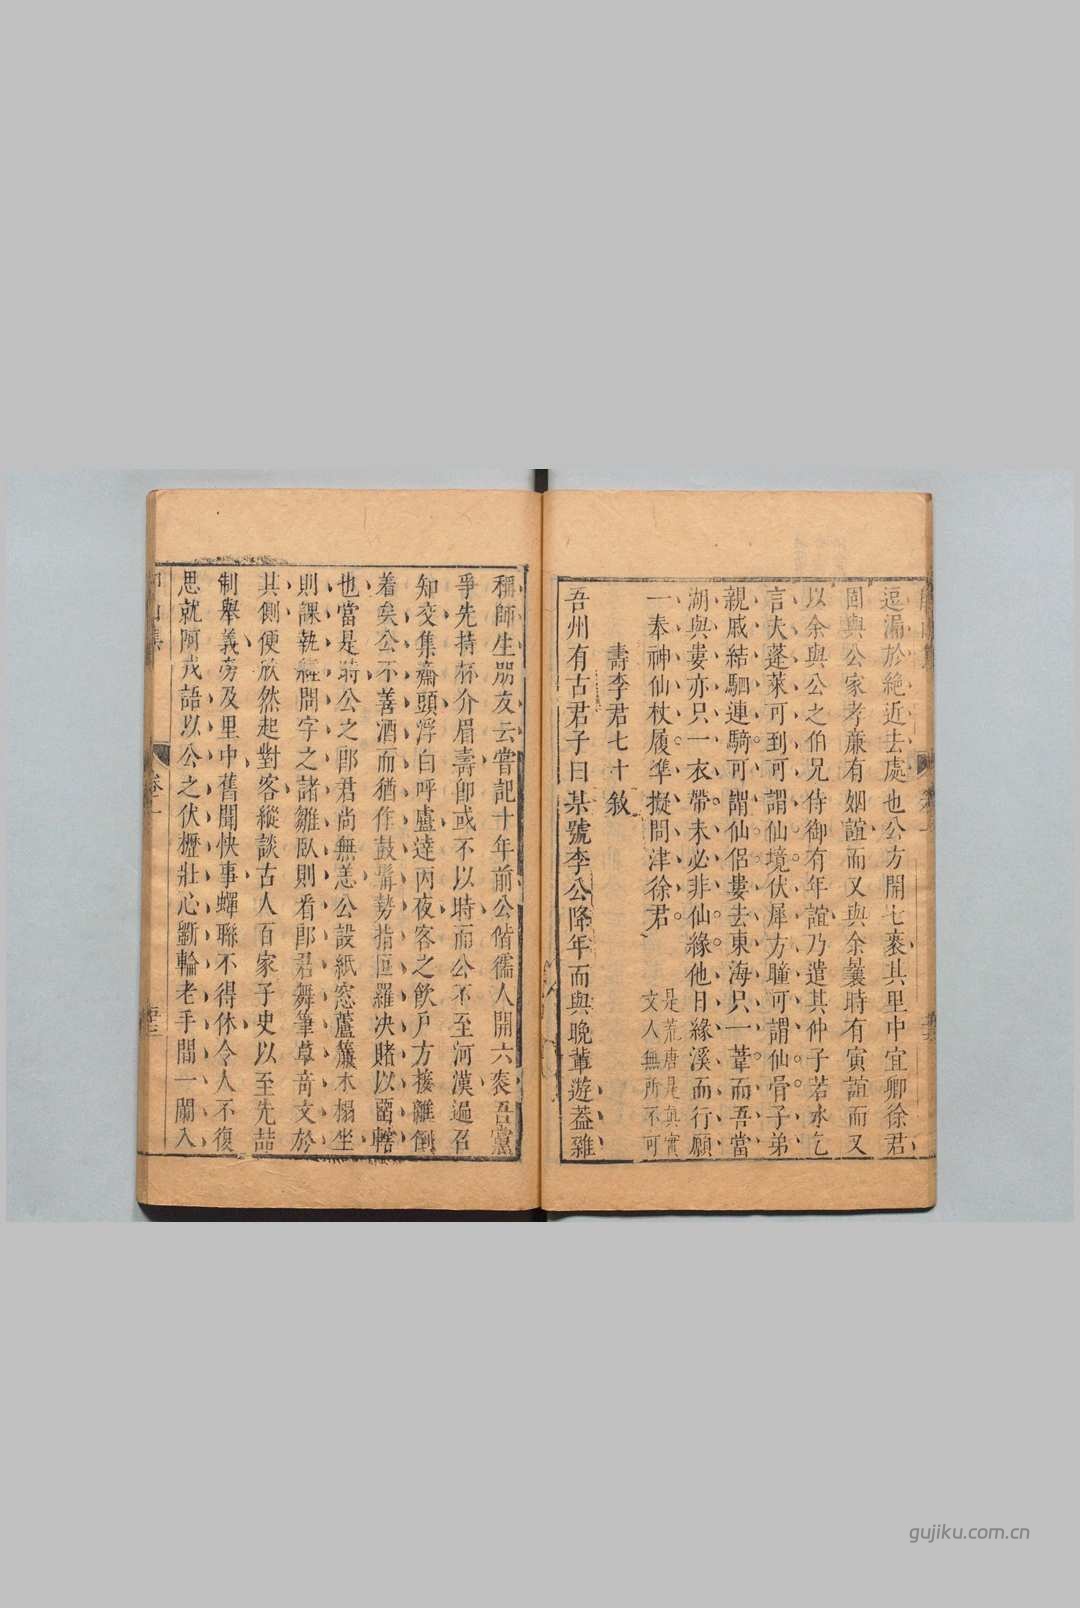 逗漏於絕近去處也公方開七袠其里中宜卿徐君
固與公家孝廉有姻誼而又與余曩時有寅誼而又
以余與公之伯兄侍御有年誼乃遣其仲子若水乞
言夫蓬萊可到可謂仙境伏犀方瞳可謂仙骨子弟
親戚結駟連騎可謂仙侶婁去東海只一葦而吾當
湖與婁亦只一衣帶未必非仙緣他日緣溪而行願
一奉神仙杖履準擬問津徐君
是荒唐是真實
文人無所不可
壽李君七十敘
吾州有古君子曰某號李公降年而與晚輩遊蓋雜
稱師生朋友云嘗記十年前公偕孺人開六袠吾黨
爭先持杯介眉壽卽或不以時而公不至河漢過召
知交集齋頭浮白呼盧達丙夜客之飲戶方接離倒
着矣公不善酒而猶作鼓髯勢指叵羅决賭以留轄
也當是時公之郎君尚無恙公設紙窓蘆簾木榻坐
則課執經問字之諸雛臥則看郎君舞筆草奇文於
其側便欣然起對客縱談古人百家子史以至先喆
制舉義旁及里中舊聞快事蟬聯不得休令人不復
思就阿戎語以公之伏櫪壯心斵輪老手間一闌入
卷十一